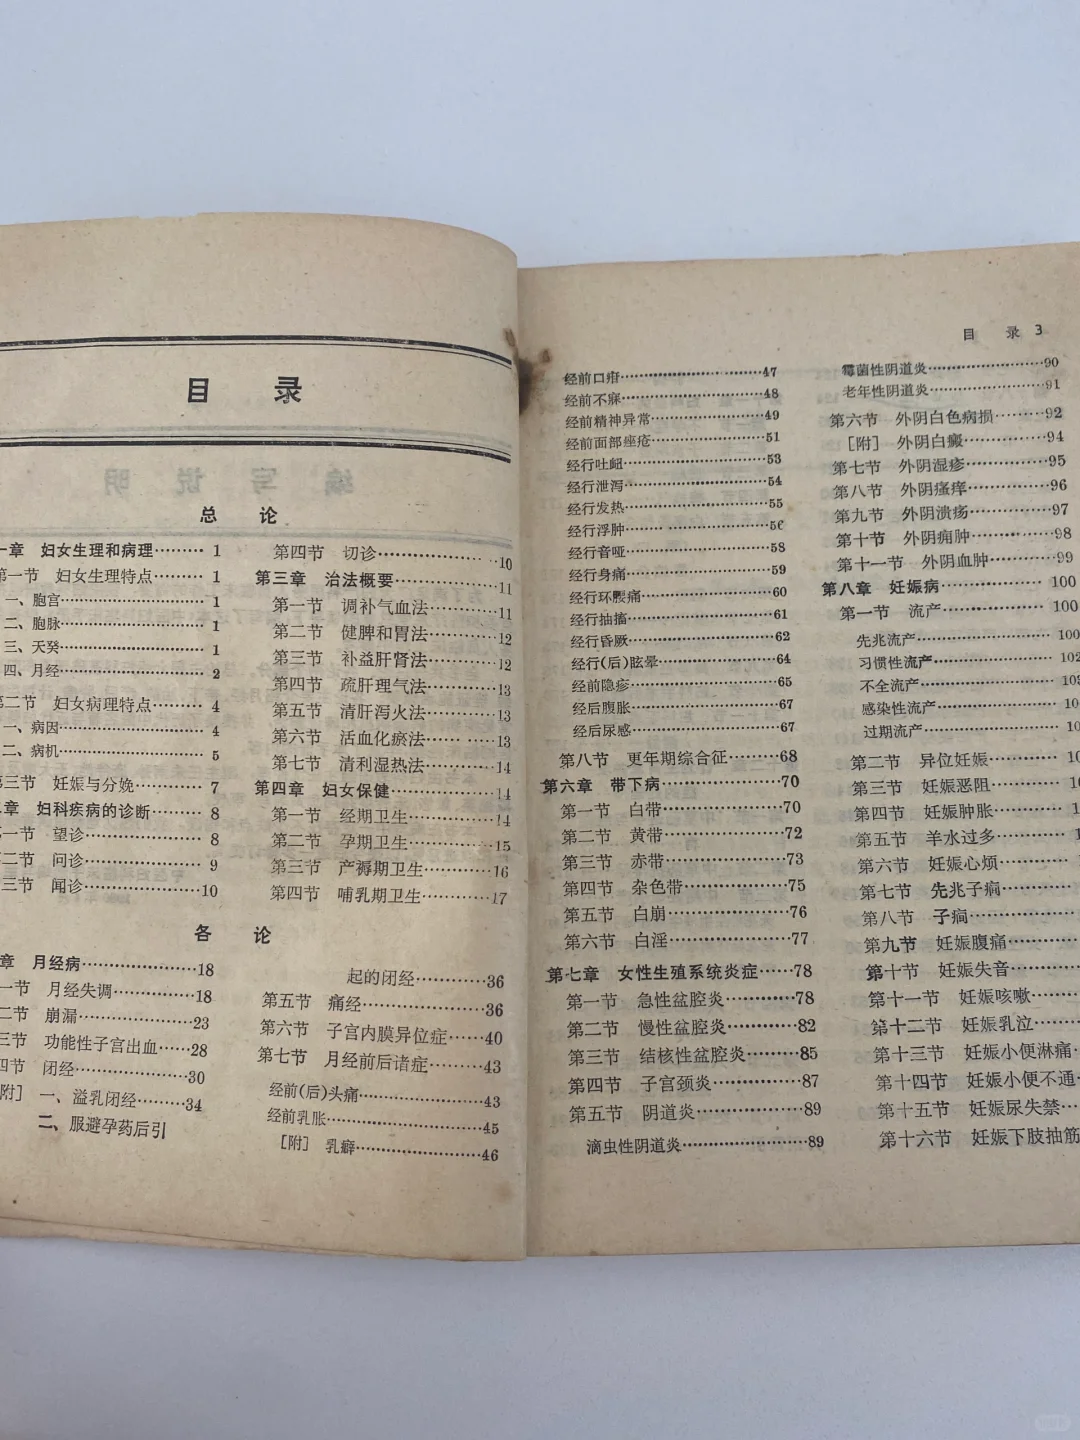 目 录
总 论
一章 妇女生理和病理……… 1
第一节 妇女生理特点……… 1
一、胞宫……… 1
二、胞脉……… 1
三、天癸……… 1
四、月经……… 2
第二节 妇女病理特点……… 4
一、病因……… 4
二、病机……… 5
第三节 妊娠与分娩……… 7
章 妇科疾病的诊断……… 8
第一节 望诊……… 8
第二节 问诊……… 9
第三节 闻诊……… 10
第四节 切诊……… 10
第三章 治法概要……… 11
第一节 调补气血法……… 11
第二节 健脾和胃法……… 12
第三节 补益肝肾法……… 12
第四节 疏肝理气法……… 13
第五节 清肝泻火法……… 13
第六节 活血化瘀法……… 13
第七节 清利湿热法……… 14
第四章 妇女保健……… 14
第一节 经期卫生……… 14
第二节 孕期卫生……… 15
第三节 产褥期卫生……… 16
第四节 哺乳期卫生……… 17
各 论
章 月经病……… 18
一节 月经失调……… 18
二节 崩漏……… 23
三节 功能性子宫出血……28
四节 闭经……… 30
附］ 一、溢乳闭经……… 34
二、服避孕药后引
起的闭经……… 36
第五节 痛经……… 36
第六节 子宫内膜异位症……40
第七节 月经前后诸症……… 43
经前(后)头痛……… 43
经前乳胀……… 45
［附］ 乳癖……… 46
目 录 3
经前口疳……… 47
经前不寐……… 48
经前精神异常……… 49
经前面部痤疮……… 51
经行吐衄……… 53
经行泄泻……… 54
经行发热……… 55
经行浮肿……… 56
经行音哑……… 58
经行身痛……… 59
经行环腰痛……… 60
经行抽搐……… 61
经行昏厥……… 62
经行(后)眩晕……… 64
经前隐疹……… 65
经后腹胀……… 67
经后尿感……… 67
第八节 更年期综合征……… 68
第六章 带下病……… 70
第一节 白带……… 70
第二节 黄带……… 72
第三节 赤带……… 73
第四节 杂色带……… 75
第五节 白崩……… 76
第六节 白淫……… 77
第七章 女性生殖系统炎症……78
第一节 急性盆腔炎……… 78
第二节 慢性盆腔炎……… 82
第三节 结核性盆腔炎……… 85
第四节 子宫颈炎……… 87
第五节 阴道炎……… 89
滴虫性阴道炎……… 89
霉菌性阴道炎……… 90
老年性阴道炎……… 91
第六节 外阴白色病损……… 92
［附］ 外阴白癜……… 94
第七节 外阴湿疹……… 95
第八节 外阴瘙痒……… 96
第九节 外阴溃疡……… 97
第十节 外阴痈肿……… 98
第十一节 外阴血肿……… 99
第八章 妊娠病……… 100
第一节 流产……… 100
先兆流产……… 100
习惯性流产……… 102
不全流产………
感染性流产………
过期流产………
第二节 异位妊娠………
第三节 妊娠恶阻………
第四节 妊娠肿胀………
第五节 羊水过多………
第六节 妊娠心烦………
第七节 先兆子痫………
第八节 子痫………
第九节 妊娠腹痛………
第十节 妊娠失音………
第十一节 妊娠咳嗽………
第十二节 妊娠乳泣………
第十三节 妊娠小便淋痛
第十四节 妊娠小便不通
第十五节 妊娠尿失禁……
第十六节 妊娠下肢抽筋